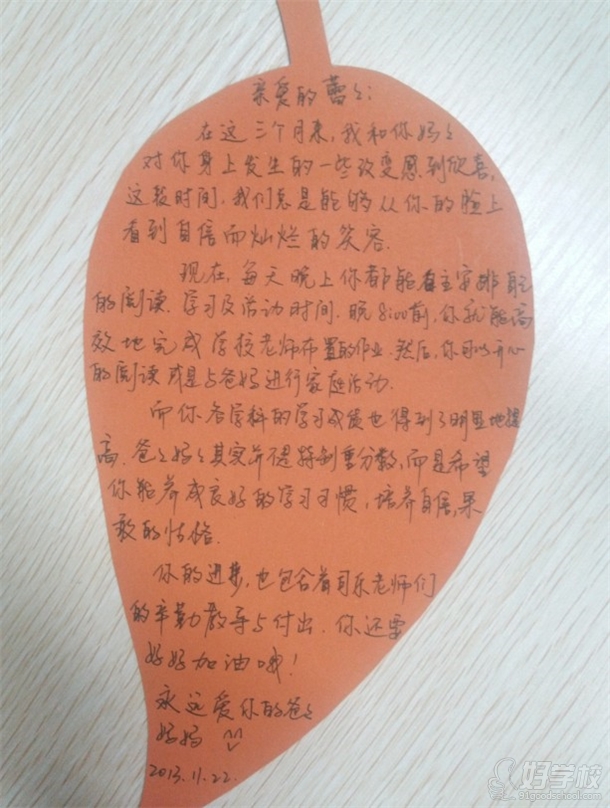 亲爱的蕾々:
在这三个月来,我和你妈々
对你身上发生的一些改变感到欣喜,
这段时间,我们总是能够从你的脸上
看到自信而灿烂的笑容.
现在,每天晚上你都能自主安排自己
的阅读、学习及活动时间.晚8:00前,你就能高
效地完成学校老师布置的作业.然后,你可以开心
的阅读或是与爸妈进行家庭活动.
而你各学科的学习成绩也得到了明显地提
高.爸々妈々其实并不是特别看重分数,而是希望
你能养成良好的学习习惯,培养自信、果
敢的性格.
你的进步,也包含着可乐老师们
的辛勤教导与付出.你还要
好好加油哦!
永远爱你的爸々
妈妈
2013.11.22.
好学校
a1goodschool.com